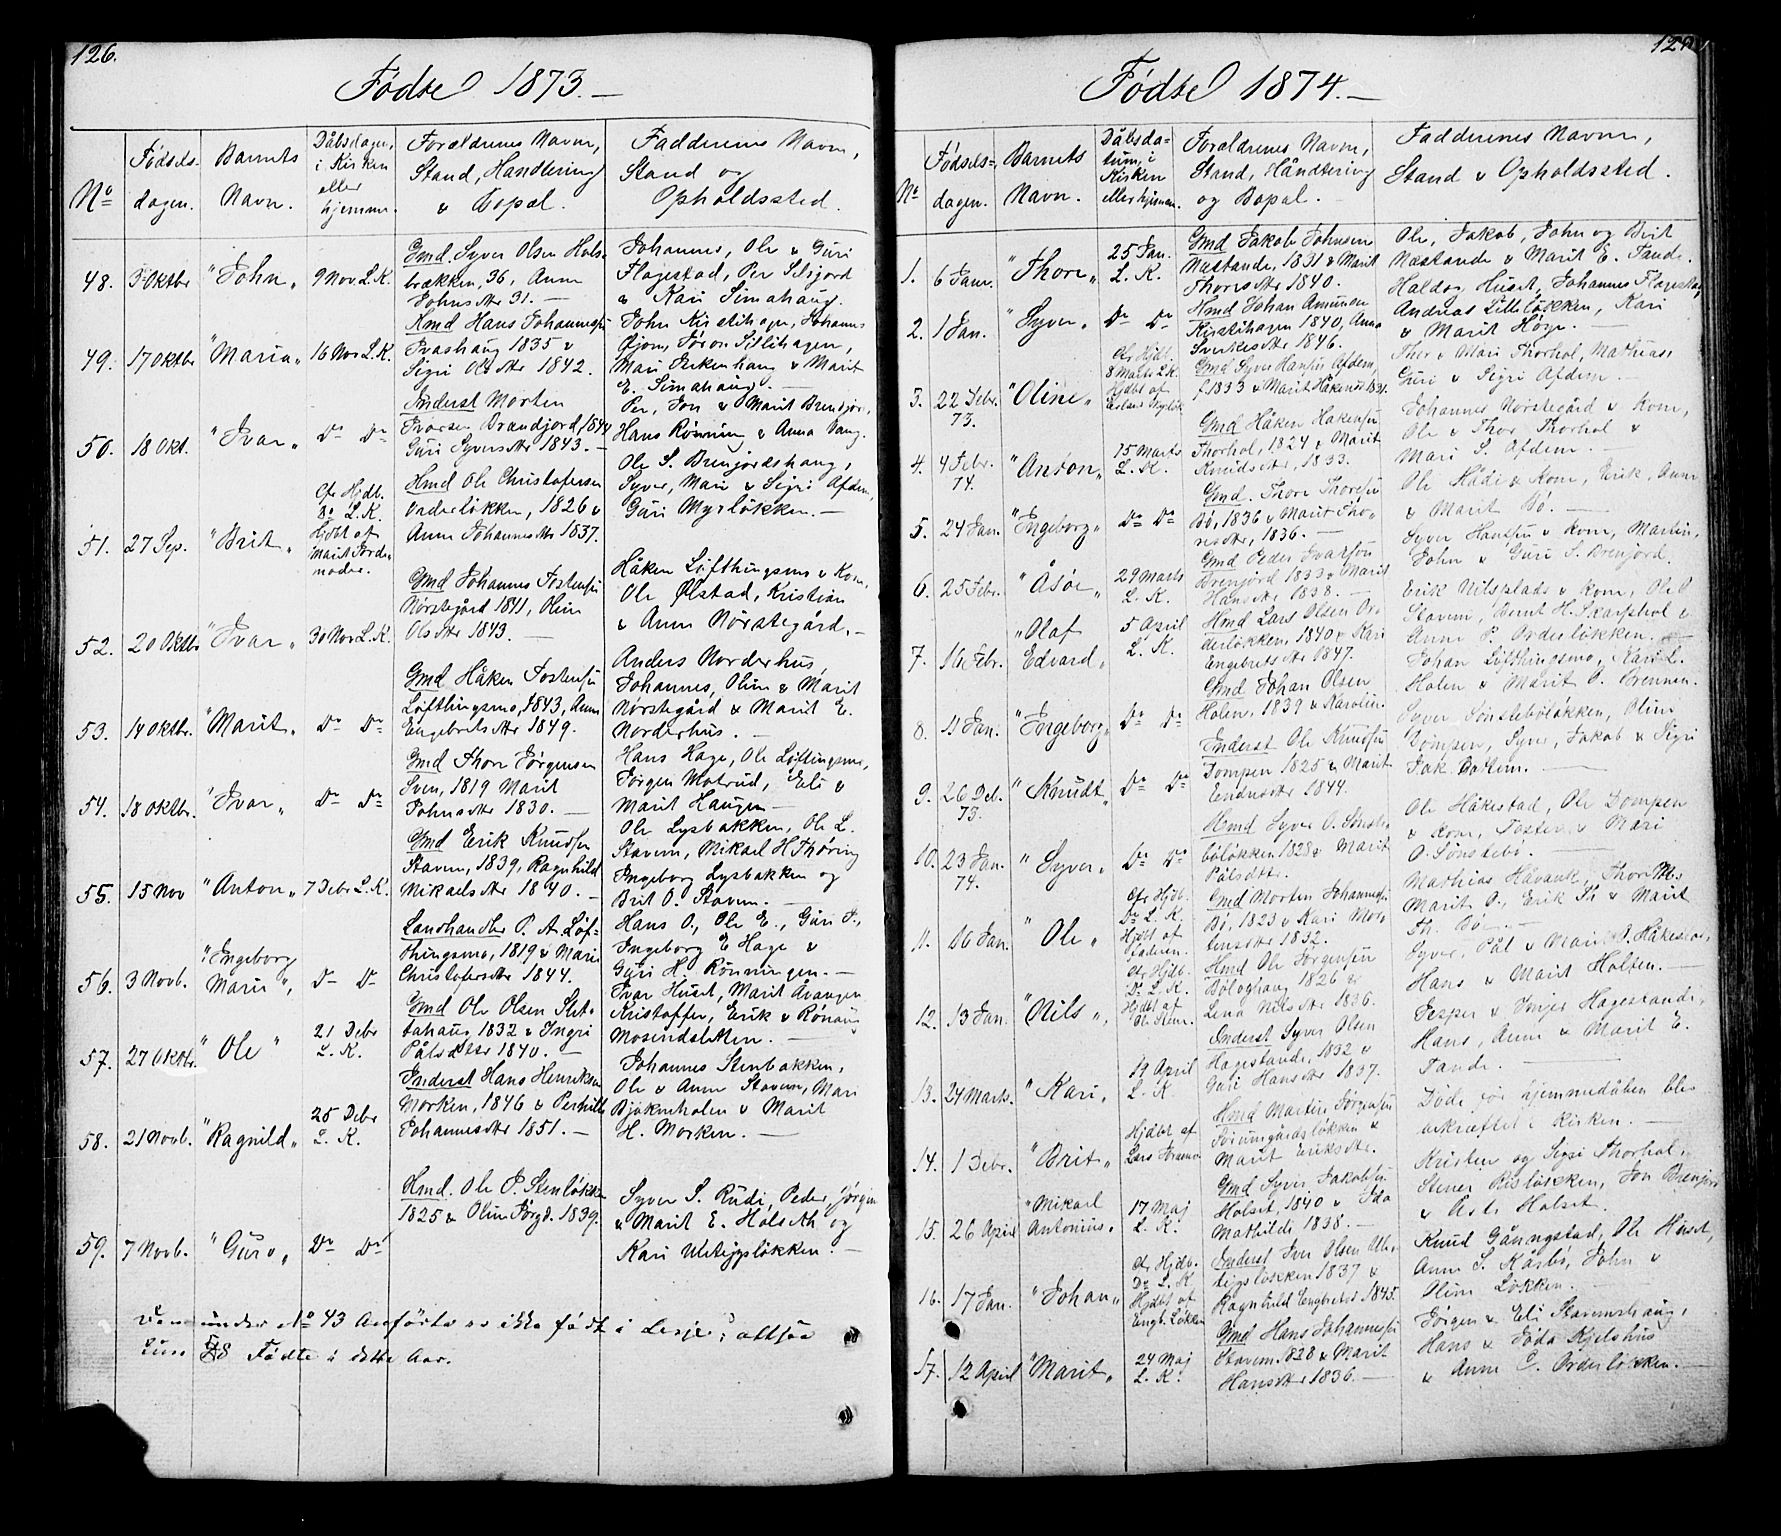 126.
Fødte 1873.—
No
Fødsels-
dagen.
Barnets
Navn.
Dåbsdagen,
i Kirken
eller
hjemme.
Forældrenes Navn,
Stand, Handtering
& Bopæl.
Faddernes Navn,
Stand og
Opholdssted.
48. 3 Oktbr "John„ 9 Nov. L.K.
Gmd. Syver Olsen Hols-
brækken, 36, Anne
Johnsdtr 31. —
Johannes, Ole & Guri
Flagestad, Per Selsjord
& Kari Simahaug.
49. 17 Oktbr "Maria„ 16 Nov L.K.
Hmd Hans Johannessen
Ivashaug 1835 &
Sigri Olsdtr 1842.
John Kirstihagen, Johannes
Øjom, Søren Sillihagen,
Mari Birkenhaug & Marit
E. Simahaug. —
50. 18 Okt. "Ivar„ Do Do
Inderst Morten
Ivarsen Brandjord, 1844
Guri Syversdtr 1843. —
Per, Jon & Marit Brenjor,
Hans Rønning & Anna Vang.
51. 27 Sep. "Brit„
Cfr Hjdb.
Do L.K.
Hjdbt af
Marit Jorde-
moder.
Hmd Ole Christofersen
Orderløkken, 1826 &
Anne Johannesdtr 1837.
Ole S. Brenjordshaug,
Syver, Mari & Sigri Afdem,
Guri Myrløkken. —
52. 20 Oktbr "Ivar„ 30 Nov L.K.
Gmd Johannes Jostensen
Nørstegård 1841, Oline
Olsdtr 1843. —
Håken Løfthingsmo & Kone,
Ole Ølstad, Kristian
& Anne Nørstegård. —
53. 14 Oktbr. "Marit„ Do Do
Gmd Håken Jostensen
Løfthingsmo, 1843, Anne
Engebretsdtr 1849.
Anders Norderhus,
Johannes, Oline & Marit
Nørstegård & Marit E.
Norderhus. —
54. 18 Oktbr. "Ivar„ Do Do
Gmd Thore Jørgensen
Sven, 1819 Marit
Johnsdtr 1830. —
Hans Hage, Ole Løftingsmo,
Jørgen Motrud, Eli &
Marit Haugen —
55. 15 Nov "Anton„ 7 Debr L.K.
Gmd Erik Knudsen
Stavem, 1839, Ragnhild
Mikaelsdtr 1840. —
Ole Lysbakken, Ole L.
Stavem, Mikael H Thøring
Ingeborg Lysbakken og
Brit O. Stavem. —
56. 3 Novb. "Ingeborg
Marie„ Do Do
Landhandler P. A. Løf-
thingsmo, 1819 & Marie
Christofersdtr 1844.
Hans O., Ole E., Guri J.,
Ingeborg E Hage &
Guri H. Rønningen. —
57. 27 Oktbr. "Ole" 21 Debr
L.K.
Gmd Ole Olsen Slet-
tahaug 1832 & Ingri
Pålsdtr 1840. —
Ivar Huset, Marit Avangen
Kristoffer, Erik & Rønnaug
Mosendsletten. —
58. 21 Novb. "Ragnild„ 25 Debr
L. K.
Inderst Hans Henriksen
Morken, 1846 & Pernille
Johannesdtr 1851. —
Johannes Stenbakken,
Ole & Anne Stavem, Mari
Bjøkneholen & Marit
H. Morken. —
59. 7 Novb. "Guro„ Do Do
Hmd. Ole P. Stenløkken
1825 & Oline Jørgd. 1839.
Syver S. Rudi, Peder, Jørgen
& Marit E. Holseth og
Kari Utstigsløkken. —
Den under No 43 Anførte er ikke født i Lesje; altsaa
kun 58 Fødte i dette Aar.
Fødte 1874.—
No
Fødsels-
dagen.
Barnets
Navn.
Dåbsda-
tum, i
Kirken
eller hjemme.
Forældrenes Navn,
Stand, Håndtering
og Bopæl.
Faddernes Navn,
Stand & Opholdssted.
1. 6 Janr. "Thore„ 25 Jan.
L. K.
Gmd Jakob Johnsen
Næstande, 1831 & Marit
Thoresdtr 1840.
Ole, Jakob, John og Brit
Næstande & Marit E. Tande.
2. 1 Jan. "Syver„ Do Do
Hmd Johan Amunsen
Kirstihagen 1840, Anna
Sverkesdtr 1846.
Haldor Huset, Johannes Flagestad,
Andreas Lilleløkken, Kari
& Marit Hage. —
3. 22 Febr.
73. "Oline„
Cfr Hjdb.
8 Marts L.K.
Hjdbt af
Gmd Syver Hansen Afdem,
f. 1833 & Marit Håkensd 1831.
Thor & Mari Thorhol, Mathias,
Guri & Sigri Afdem. —
4. 4 Febr.
74. "Anton„ 15 Marts
L. K.
Gmd Håken Hakensen
Thorhol, 1824 & Marit
Knudsdtr, 1833.
Johannes Nørstegård & Kone,
Ole & Thor Thorhol &
Mari S. Afdem. —
5. 24 Jan. "Engeborg„ Do Do
Gmd. Thore Thoresen
Bø, 1836 & Marit Tho-
resdtr, 1836. —
Ole Rudi & Kone, Erik, Anne
& Marit Bø. —
6. 25 Febr. "Åsøe„ 29 Marts
L. K.
Gmd Peder Ivarsen
Brenjord 1833 & Marit
Hansdtr 1838. —
Syver Hansen & Kone, Martin,
John & Guri S. Brenjord.
7. 16 Febr. "Olaf
Edvard„ 5 April
L. K.
Hmd Lars Olsen Or-
derløkken, 1840 & Kari
Engebretsdtr 1847.
Erik Nilsplads & Kone, Ole O
Stavem, Bernt H. Skarphol &
Anne P. Orderløkken.
8. 11 Jan. "Engeborg„ Do Do
Gmd Johan Olsen
Holen, 1839 & Karoline.
Johan Løfthingsmo, Kari L.
Holen & Marit O. Brennen.
9. 26 Deb.
73. "Knudt„ Do Do
Inderst Ole Knudsen
Dompen 1825 & Marit
Endresdtr 1844.
Syver Sønstebøløkken, Oline
Dompen, Syver, Jakob & Sigri
Jak. Bottem. —
10. 23 Jan.
74. "Syver„ Do Do
Hmd Syver O. Sønste-
bøløkken 1828 & Marit
Pålsdtr.
Ole Håkestad, Ole Dompen
& Kone, Josten & Mari
O. Sønstebø.
11. 16 Jan. "Ole„
Cfr Hjdb.
Do L. K.
Hjdbt af
Faderen.
Gmd Morten Johannessen
Bø, 1823 & Kari Mor-
tensdtr 1832.
Mathias Håvank, Thore M.,
Marit O., Erik Th & Marit
Th. Bø. —
12. 13 Jan. "Nils„
Cfr Hjdb.
Do L. K.
Hjdbt af
Hmd Ole Jørgensen
Bøloghaug 1826 &
Lena Nilsdtr 1836.
Syver, Pål & Marit P. Håkestad,
Hans & Marit Holsen. —
13. 24 Marts. "Kari„ 19 April
L. K.
Inderst Syver Olsen
Hagestande, 1832 &
Guri Hansdtr 1837.
Jesper & Inger Hagestande,
Hans, Anne & Marit E.
Tande. —
14. 1 Debr. "Brit„
Hjdbt af
Hmd Martin Jørgensen
Forumgårdsløkken &
Marit Eriksdtr.
Døde før hjemmedåben blev
bekræftet i Kirken. —
15. 26 April "Mikael
Antonius„ 17 Maj
L. K.
Gmd Syver Jakobsen
Holset, 1840 & Ida
Mathilde 1838. —
Kristen og Sigri Thorhol,
Stener Risløkken, Jon Brenjord
& Asle Holset.
16. 17 Jan. "Johan„
Cfr Hjdb.
Do L. K
Hjdbt af
Engb. Løkken
Inderst Iver Olsen Ute-
stigsløkken 1837 &
Ragnhild Engbretsd 1845.
Knud Gåungstad, Ole Huset,
Anne S. Kårbø, John &
Oline Løkken. —
17. 12 April "Marit„ 24 Maj
L. K.
Gmd Hans Johannessen
Stavem 1828 & Marit
Hansdtr 1836. —
Jørgen & Eli Stavemshaug,
Hans & Jøda Kjelshus
& Anne P. Orderløkken. —